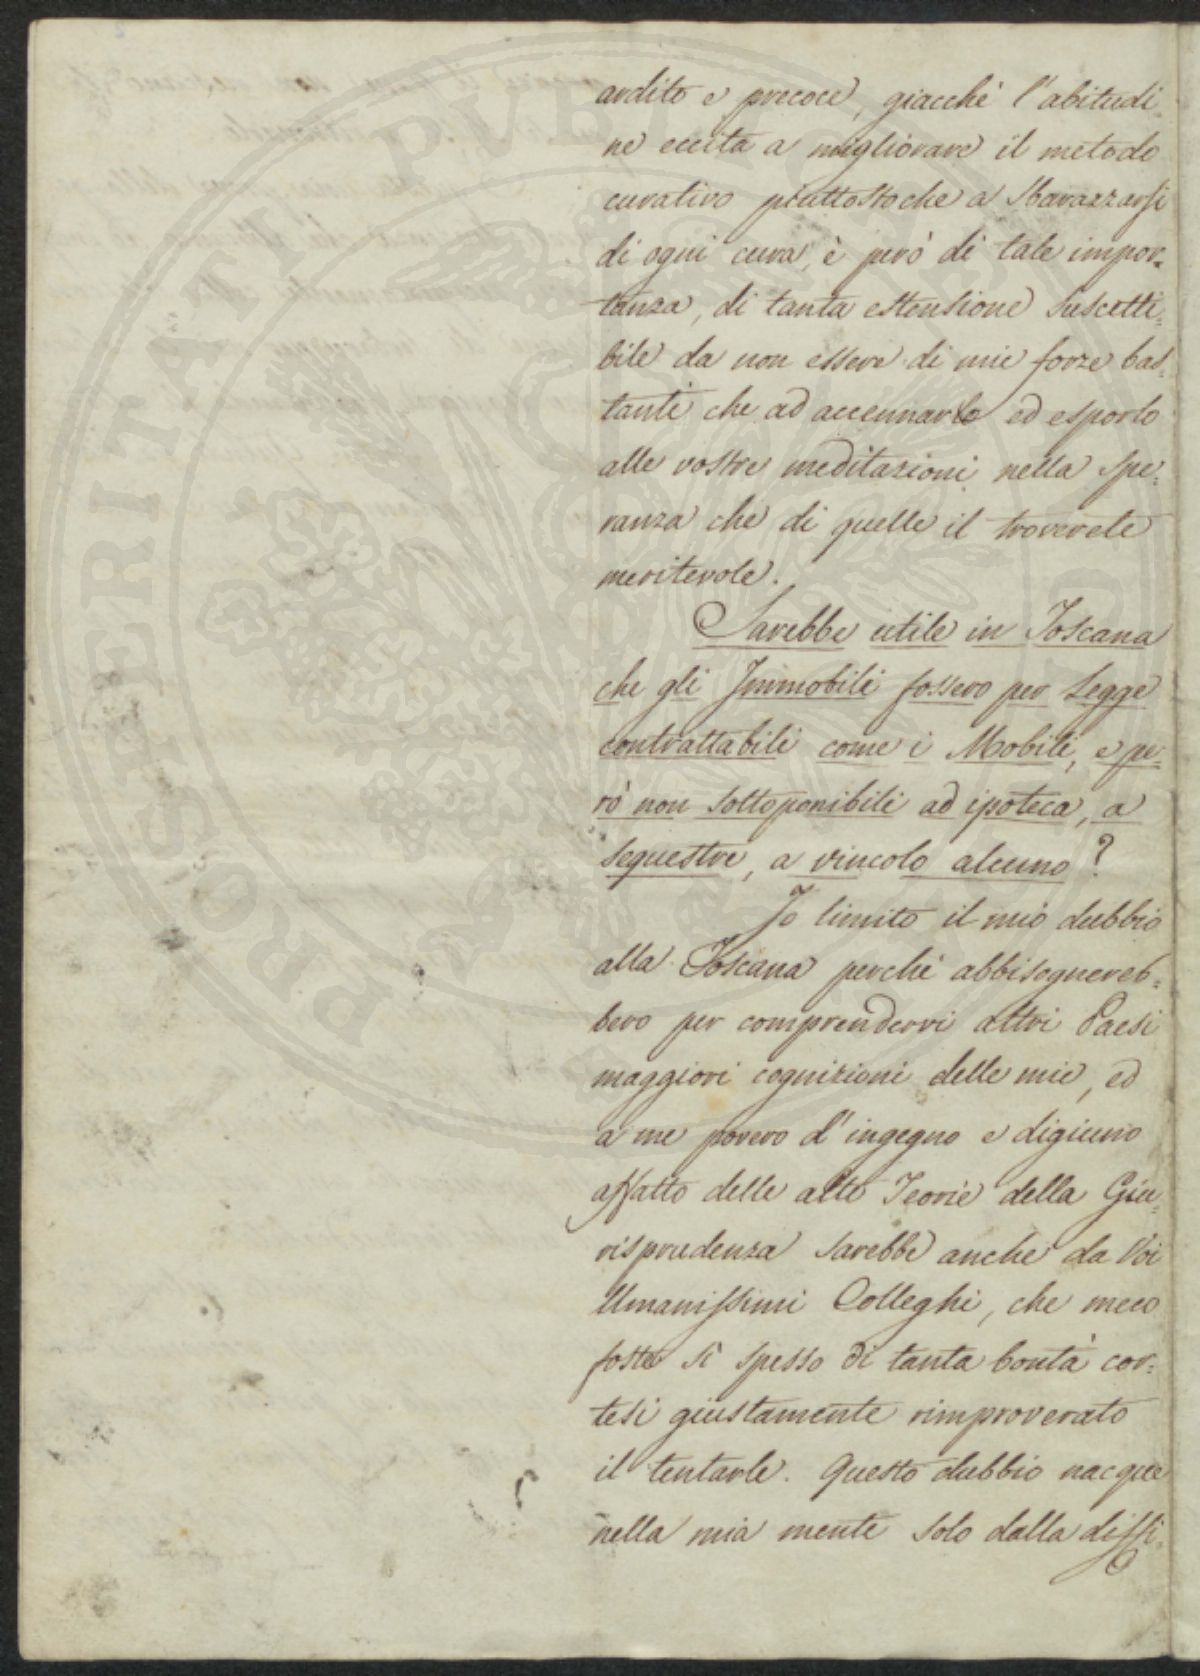 ardito e precoce, giacchè l'abitudi
ne eccita a migliorare il metodo
curativo piuttostoche a sbarazzarsi
di ogni cura, è però di tale impor=
tanza, di tanta estensione suscetti=
bile da non essere di mie forze bas=
tanti che ad accennarlo ed esporlo
alle vostre meditazioni nella spe=
ranza che di quelle il troverete
meritevole.
Sarebbe utile in Toscana
che gli Immobili fossero per Legge
contrattabili come i Mobili, e pe=
rò non sottoponibili ad ipoteca, a
sequestro, a vincolo alcuno?
Io limito il mio dubbio
alla Toscana perchè abbisognereb=
bero per comprendervi altri Paesi
maggiori cognizioni delle mie, ed
a me povero d'ingegno e digiuno
affatto delle alte Teorie della Giu=
risprudenza sarebbe anche da Voi
Umanissimi Colleghi, che meco
foste sì spesso di tanta bontà cor=
tesi giustamente rimproverato
il tentarle. Questo dubbio nacque
nella mia mente solo dalla diffi=
PROSPERITATI PUBLICAE